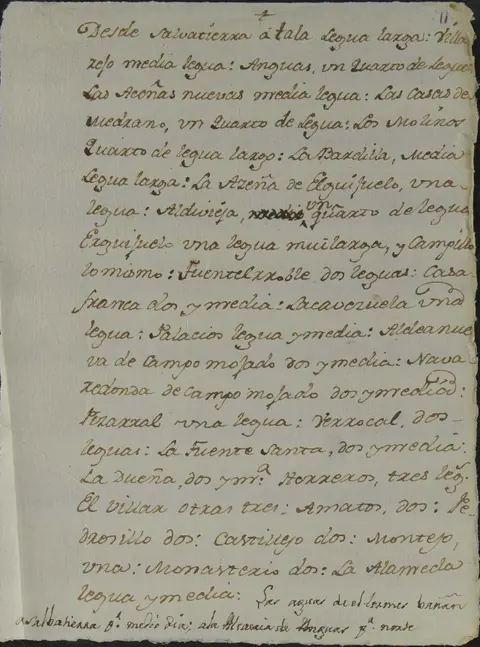 11
Desde Salvatierra á tala legua larga: Villa
rejo media legua: Anguas, un Quarto de legua
Las Aceñas nuevas media legua: Las Casas de
Medrano, un Quarto de legua: Los Molinos
Quarto de legua largo: La Bardilla, Media
legua larga: La Azeña de Elguijuelo, una
legua: Aldivieja, un quarto de legua
Exguijuelo una legua mui larga, y Campillo
lo mismo: Fuenterroble dos leguas: Casa
franca dos, y media: Lacavezuela una
legua: Palacios legua y media: Aldeanue
va de Campo mojado dos y media: Nava
redonda de Campo mojado dos y media:
Pizarral una legua: Verrocal, dos
leguas: La Fuente Santa, dos y media:
La Dueña, dos y m.ª Herreros, tres leg.
El villar otras tres: Amatos, dos: Pe
drosillo dos: Castillejo dos: Montejo,
una: Monasterio dos: La Alameda
legua y media: Las aguas de el tormes bañan
a Salbatierra p.r medio dia: a la Alcaria de Anguas p.r norte